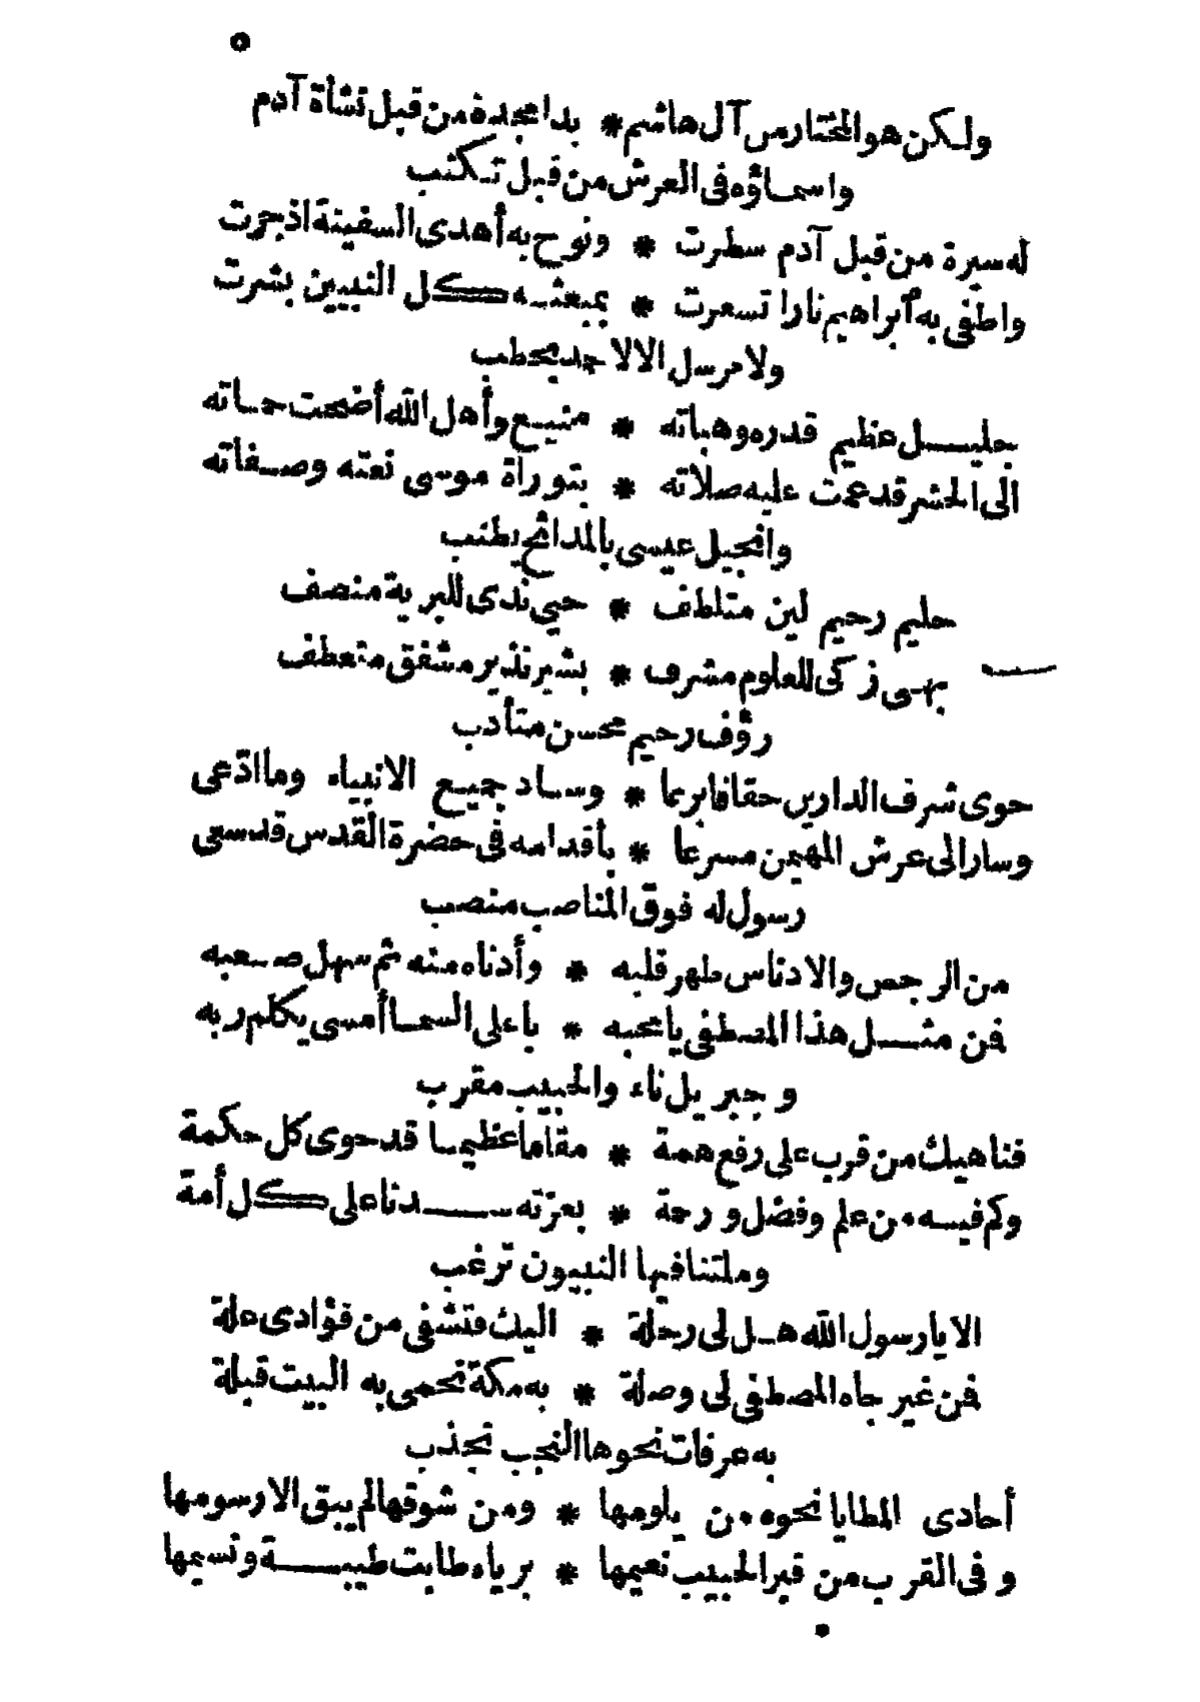 ٥
ولكن هو المختار من آل هاشم * بدا مجده من قبل نشأة آدم
واسماؤه فى العرش من قبل تكتب
له سيرة من قبل آدم سطرت * ونوح به أهدى السفينة اذ جرت
واطفى به ابراهيم نارا تسعرت * بمبعثه كل النبيين بشرت
ولا مرسل الا لا حمد يخطب
جليل عظيم قدره وهباته * منيع وأهل الله أضحت حماته
الى الحشر قد عمت عليه صلاته * بتوراة موسى نعته وصفاته
وانجيل عيسى بالمدائح يطنب
حليم رحيم لين متلطف * حيي ندى للبرية منصف
بهى زكى للعلوم مشرف * بشير نذير مشفق متعطف
رؤف رحيم محسن متأدب
حوى شرف الدارين حقا فابر عا * وساد جميع الانبياء وما ادّعى
وسار الى عرش المهيمن مسرعا * بأقدامه فى حضرة القدس قد سعى
رسول له فوق المناصب منصب
من الرجس والادناس طهر قلبه * وأدناه منه ثم سهل صعبه
فمن مثل هذا المصطفى يا محبه * باعلى السما أمسى يكلم ربه
وجبريل ناء والحبيب مقرب
فناهيك من قرب على رفع همة * مقاما عظيما قد حوى كل حكمة
وكم فيه من علم وفضل ورحمة * بعزته سدنا على كل أمة
وملتنا فيها النبيون ترغب
الا يا رسول الله هل لى رحلة * اليك فتشفى من فؤادى علة
فمن غير جاه المصطفى لى وصلة * به مكة تحمى به البيت قبلة
به عرفات نحوها النجب تجذب
أحادى المطايا نحوه من يلومها * ومن شوقها لم يبق الا رسومها
وفى القرب من قبر الحبيب نعيمها * برياه طابت طيبة ونسيمها